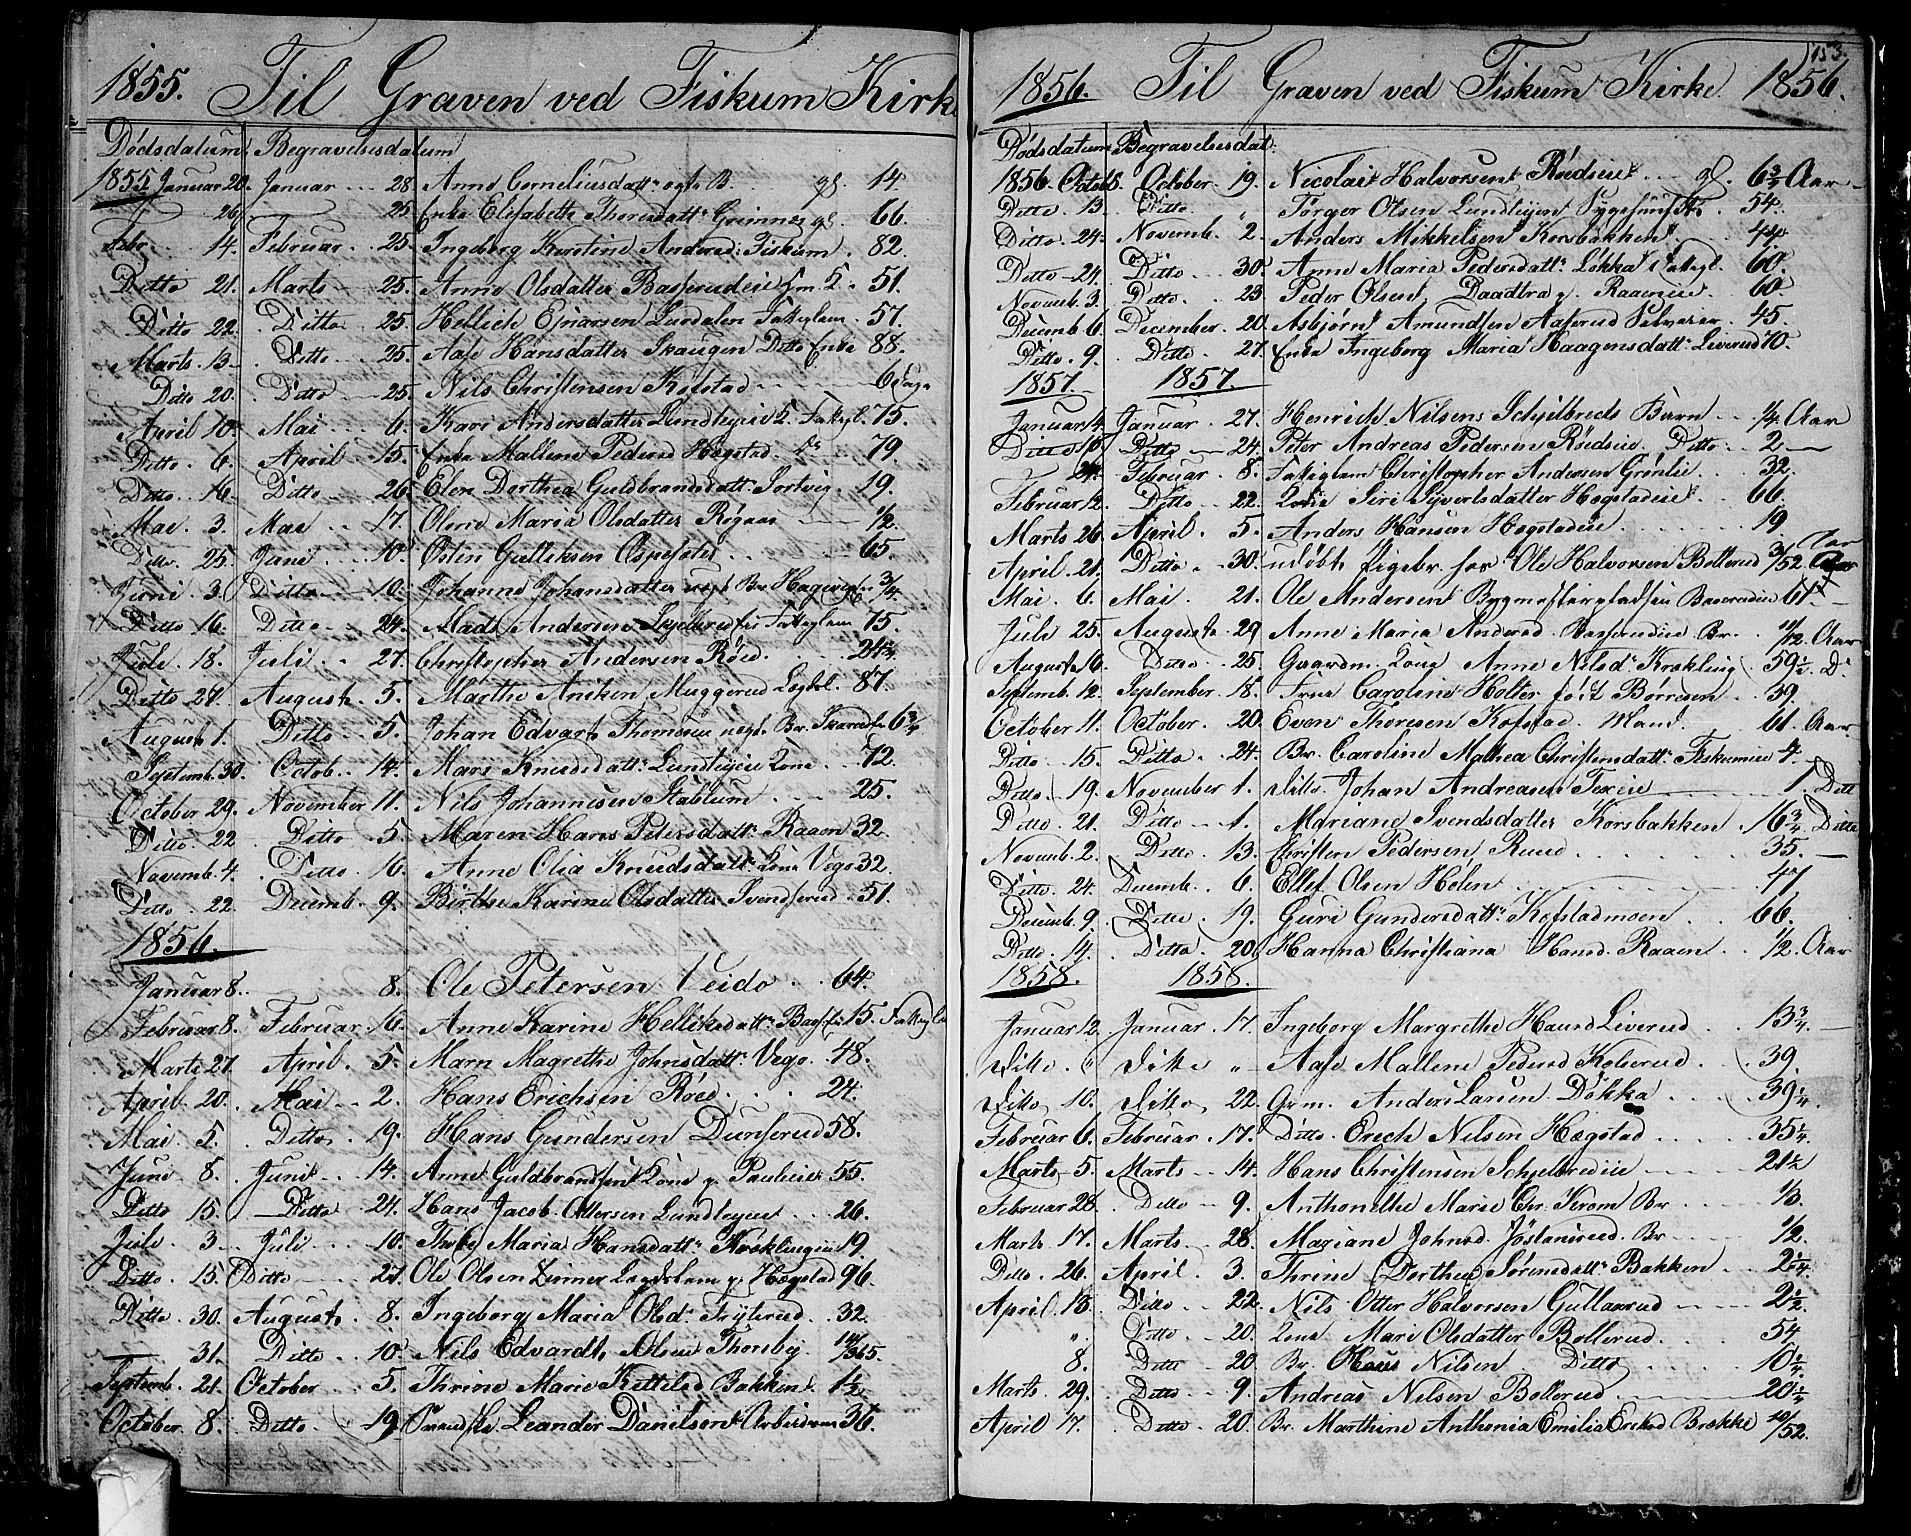 1855. Til Graven ved Fiskum Kirke
Dødsdatum Begravelsesdatum
1855 Januar 20. Januar 28 Anne Corneliusdatt: ægte B. gl. 14
26 25 Enke Elisabeth Thoresdatt: gl. 66.
Febr. 14. Februar 25. Ingeborg Kirstine Andersd: Fiskum 82.
Ditto 21. Marts 25. Anne Olsdatter 51.
Ditto 22. Ditto 25. Hellich Ejnarsen Lurdalen Fattiglem 57.
Marts 13 Ditto 25. Aase Hansdatter Skaugen Ditto Enke 88.
Ditto 20. Ditto 25. Nils Christensen Kofstad 6 Dage
April 10. Mai 6. Kari Andersdatter Lundteigeie Fattigl 75.
Ditto 6. April 15. Enke Mallene Pedersd Hægstad 79.
Ditto 16. Ditto 26. Elen Dorthea Guldbrandsdatt: Sortvig 19.
Mai 3. Mai 17. Oline Maria Olsdatter Rogaas 1/2.
Ditto. 25. Juni 10. Østen Gulliksen 65.
Juni 3. Ditto 10. Johanne Johansdatter Br. 3/4.
Ditto 16. Ditto 24. Mads Andersen Fattiglem 75.
Juli 18. Juli 27. Christopher Andersen Røed. 24 1/4.
Ditto 27. August 5. Marthe Aniken Muggerud Lægdsl. 87.
August 1. Ditto 5. Johan Edvart Thomesen Br. 6 3/4
Septemb. 30. Octob. 14. Mari Knudsdatt: Lundteigeie Kone 72.
October 29. November 11. Nils Johannesen Stablum 25.
Ditto 22 Ditto 5. Maren Hans Petersdatt: Raaen 32.
Novemb. 4. Ditto 16. Anne Olia Knudsdatt: Kone Vego 32.
Ditto 22. Decemb. 9. Birthe Karine Olsdatter Svendserud 51.
1856.
Januar 8. 8. Ole Petersen Veido 64.
Februar 8. Februar 16. Anne Karine Helliksdatt: 15. Fattigl
Marts 27. April. 5. Marn Magrethe Johnsdatt: Vego 48.
April 20. Mai 2. Hans Erichsen Røed. 24.
Mai 5. Ditto 19. Hans Gundersen Dunserud 58.
Juni 8. Juni 14. Anne Guldbrandsen Kone p. Pauleeie 55.
Ditto 15. Ditto 24. Hans Jacob Ottersen Lundteigen 26.
Juli 3. Juli 10. Maria Hansdatt: Kræklingeie 19.
Ditto 15. Ditto 27. Ole Olsen Lægdslem p. Hægstad 96.
Ditto 30. August 8. Ingeborg Maria Olsd: 32.
31. Ditto 10. Nils Edvardt Olsen Thorsby 14/365.
Septemb. 21. October 5. Thrine Marie Kittilsd Bakken 1 1/2.
October 8. Ditto 19. Leander Danielsen Arbeidsm 36.
153.
1856. Til Graven ved Fiskum Kirke. 1856.
Dødsdatum Begravelsesdat:
1856. Octob October 19. Nicolai Halvorsen Rødseie gl. 6 3/4 Aar
Ditto 13. Ditto Torger Olsen Lundteigen 54.
Ditto 24. Novemb. 2. Anders Mikkelsen Korsbakken 44
Ditto 24. Ditto 30. Anne Maria Pedersdatt: Løkka Fattigl. 60.
Novemb. 3. Ditto 23 Peder Olsen p. Raaeneie 60
Decemb. 6. December 20. Asbjørn Amundsen Aaserud Selveier 45.
Ditto 9. Ditto 27. Enke Ingeborg Maria Haagensdatt: Liverud 70.
1857. 1857.
Januar 14. Januar 27. Henrich Nilsens Schjelbreds Barn 1/4 Aar
Ditto 16 Ditto 24. Peter Andreas Pedersen Rødseie Ditto 2
24. Februar 8. Fattiglem Christopher Andersen Grønlie 32.
Februar 12. Ditto 22. Kone Siri Syvertsdatter Hægstadeie 66.
Marts 26. April. 5. Anders Hansen Hægstadeie 19
April 21. Ditto 30. udøbt Pigebr. for Ole Halvorsen Bollerud 3/52 Aar
Mai 6. Mai 21. Ole Andersen 61
Juli 25. Augusts 29 Anne Maria Andersd Br. 11/12 Aar
Augusts 16. Ditto 25. Gaardm. Kone Anne Nilsd: Krækling 59 1/2 D:
Septemb. 12. September 18. Frue Caroline Holter født Børresen 39.
October 11. October 20. Even Thoresen Kofstad. Mand. 61. Aar
Ditto 15. Ditto 24. Br. Caroline Mathea Christensdatt: Fiskumeie 4.
Ditto 19. November 1. Ditto Johan Andreasen 1. Ditto
Ditto 21. Ditto 1. Mariane Svendsdatter Korsbakken 16 3/4 Ditto
Novemb. 2. Ditto 13. Christen Pedersen Ruud 35.
Ditto 24. Decemb. 6. Ellef Olsen Holen 47
Decemb. 9. Ditto 19. Guri Gundersdatt: Kofstadmoen 66.
Ditto 14. Ditto 20. Hanna Christiana Hansd. Raaen 1/2. Aar
1858. 1858.
Januar 12. Januar 17. Ingeborg Margrethe Hansd Liverud 13 3/4
Ditto 6 Ditto " Aase Mallene Pedersd Kolserud 39.
Ditto 10. Ditto 22. Grm. Anders Larsen Dokka 39 1/4.
Februar 6. Februar 17. Ditto Erech Nilsen Hægstad 35 1/4.
Marts 5. Marts 14. Hans Christensen Schjelbredeie 21 1/2
Februar 28. Ditto 9. Anthonette Marie Chr. Krom Br. 1/3.
Marts 17. Marts 28. Mariane Johnsd. Br. 1/2.
Ditto 26. April 3. Thrine Dorthea Sørensdatt: Bakken 2 1/4.
April 13. Ditto 22. Nils Otter Halvorsen Gullaarud 2 1/2.
" Ditto 20. Kone Mari Olsdatter Bollerud 54.
8. Ditto 20. Br. Hans Nilsen Ditto 10 1/2.
Marts 29. Ditto 9. Andreas Nilsen Bollerud 20 1/4
April 17. Ditto 20. Br. Marthine Anthonia Emilia Ericksd Brække 10/52.